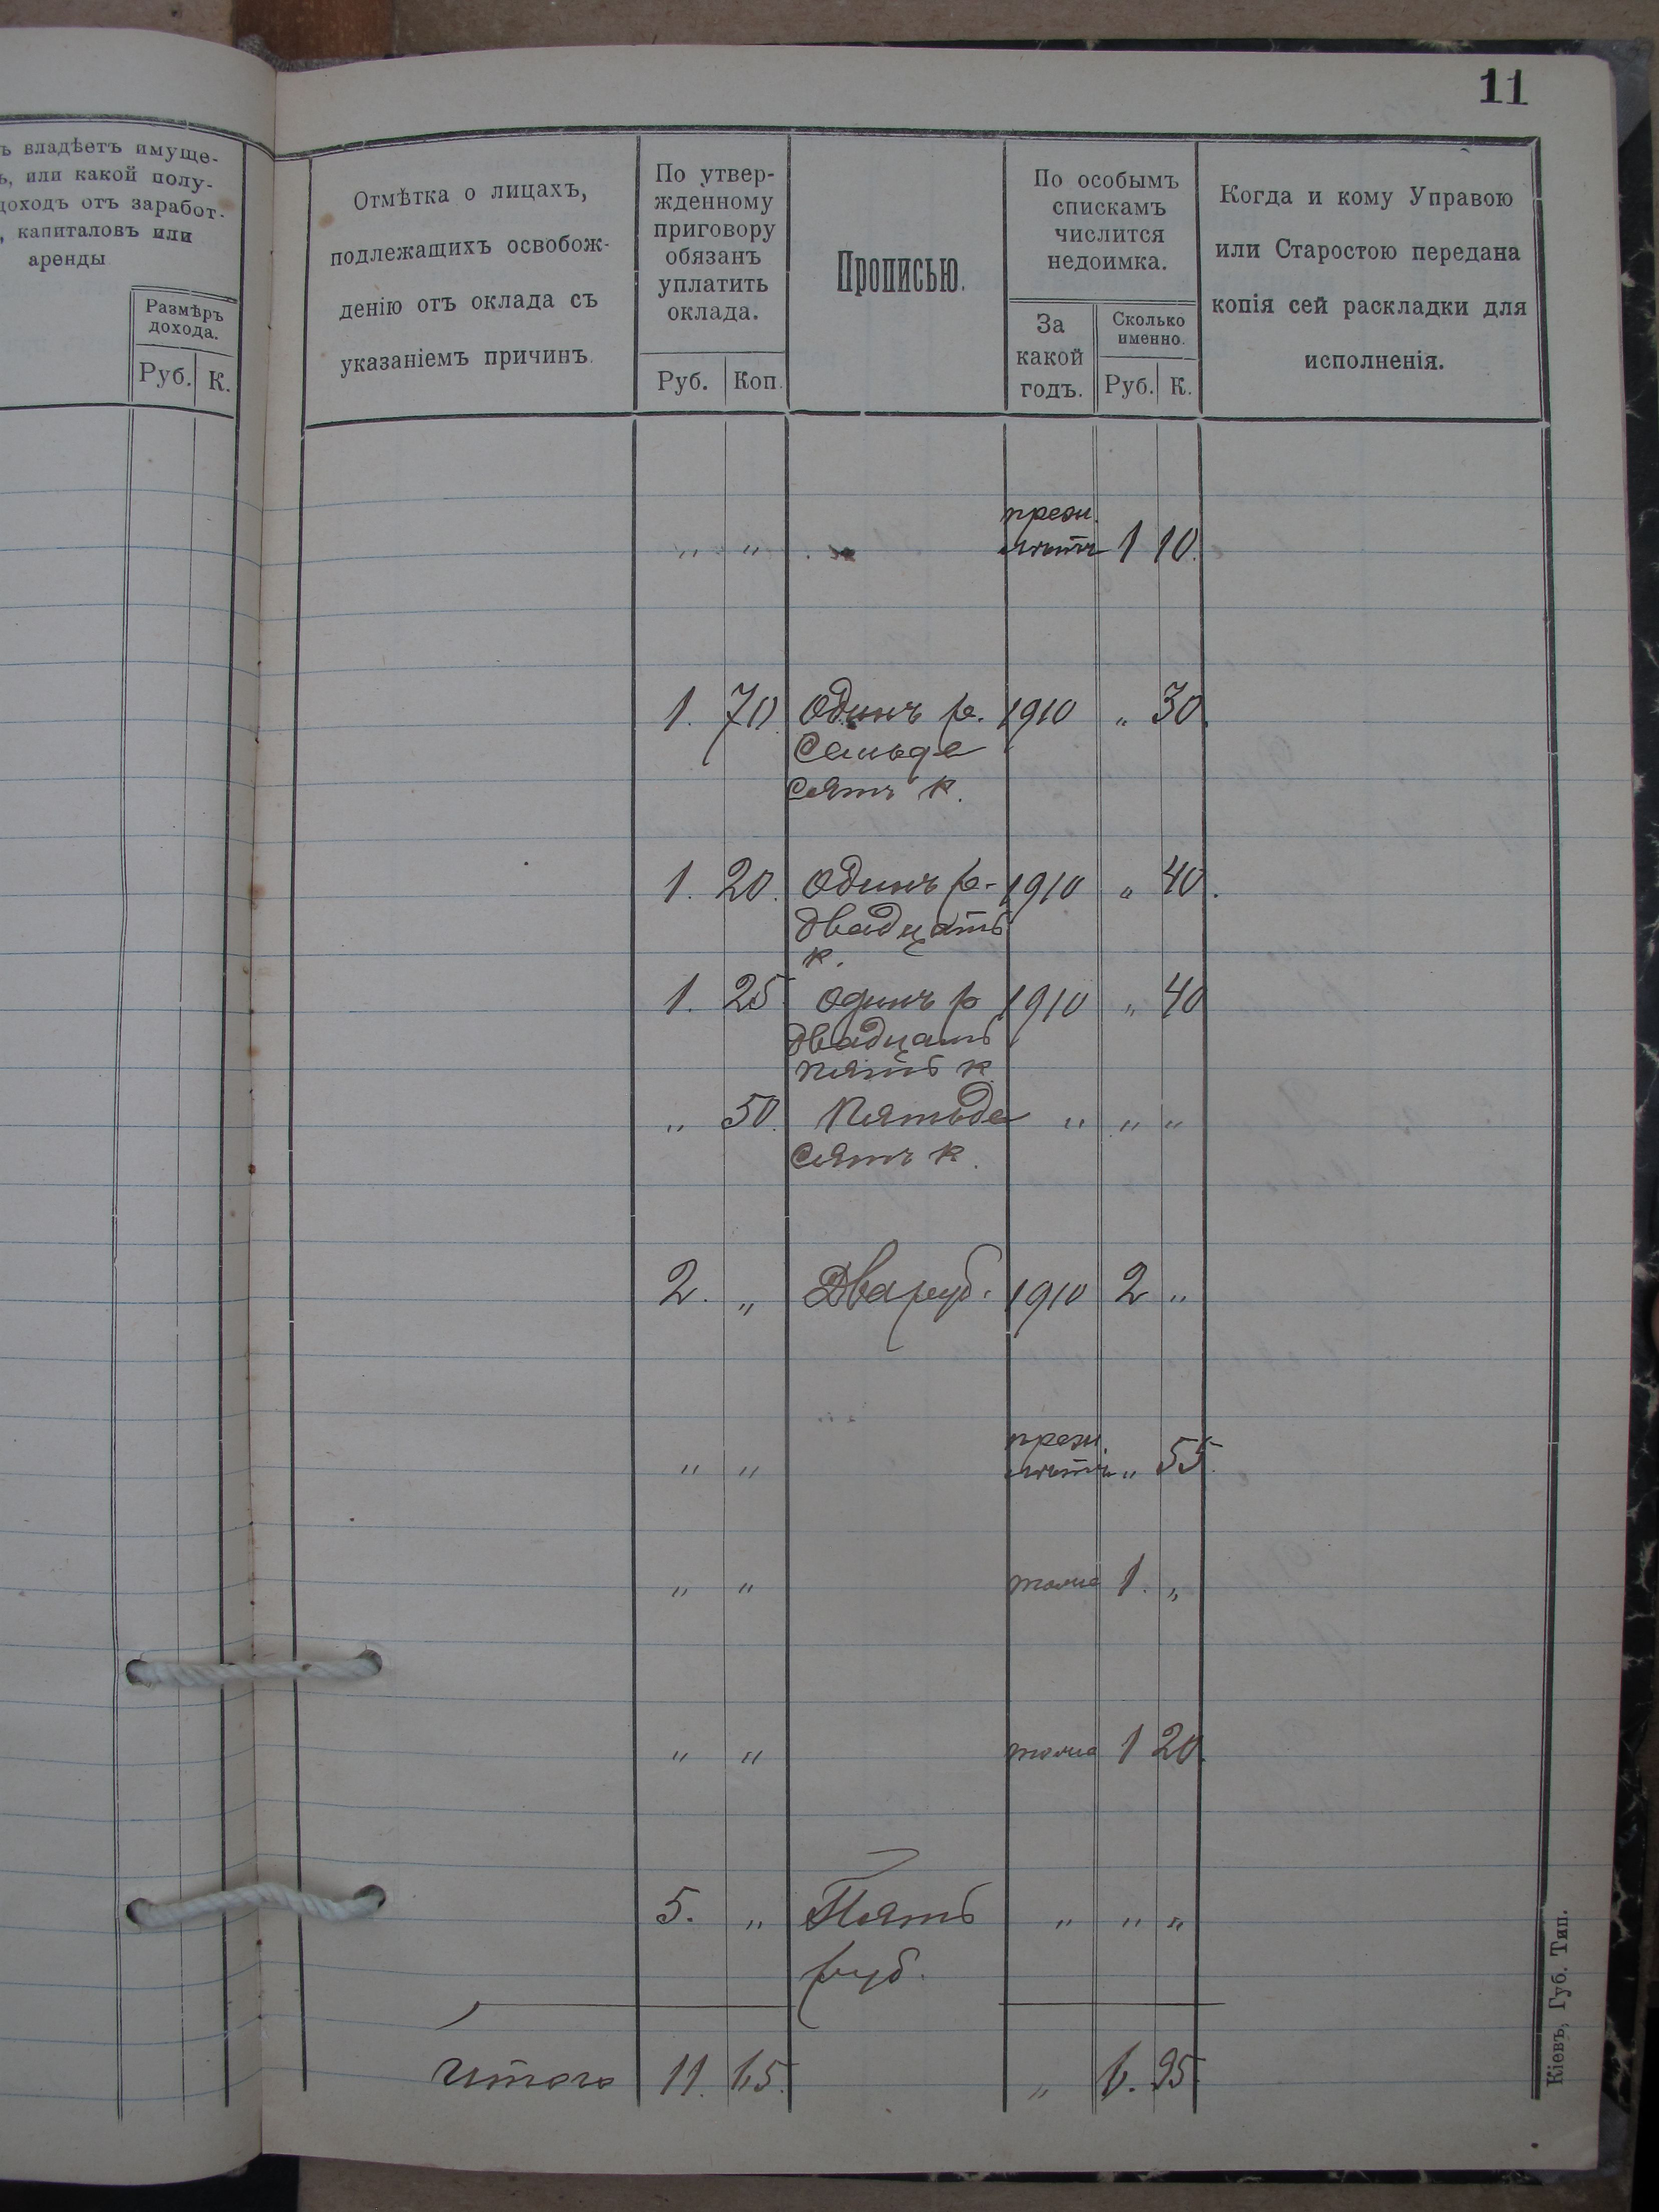 11
ъ владѣетъ имуще-
ь, или какой полу-
доходъ отъ заработ-
, капиталовъ или
аренды
Размѣръ
дохода.
Руб. К.
Отмѣтка о лицахъ,
подлежащихъ освобож-
денію отъ оклада съ
указаніемъ причинъ.
По утвер-
жденному
приговору
обязанъ
уплатить
оклада.
Руб. Коп.
Прописью.
По особымъ
спискамъ
числится
недоимка.
За
какой
годъ.
Сколько
именно.
Руб. К.
Когда и кому Управою
или Старостою передана
копія сей раскладки для
исполненія.
прежн.
„ „ „ лѣтъ 1 10.
1. 70 Одинъ р. 1910 „ 30.
Семьде
сятъ к.
1. 20. Одинъ р- 1910 „ 40.
двадцать
к.
1. 25 одинъ р 1910 „ 40
двадцать
пять к
„ 50. Пятьде „ „ „
сятъ к.
2. „ Два руб. 1910 2 „
прежн.
„ „ лѣтъ „ 55.
„ „ тоже 1. „
„ „ тоже 1 20.
5. „ Пять „ „ „
руб.
Итого 11. 65. „ 6. 95
Кіевъ, Губ. Тип.